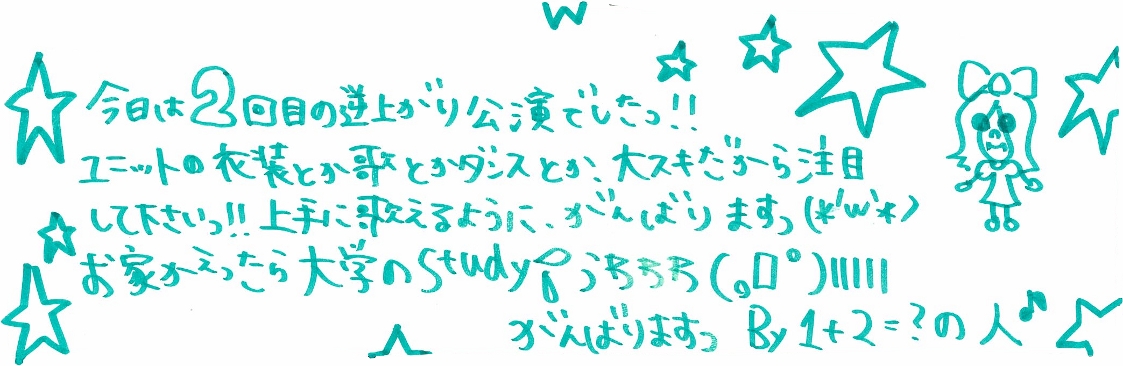 今日は2回目の逆上がり公演でしたっ!!
ユニットの衣装とか歌とかダンスとか、大スキだから注目
して下さいっ!!上手に歌えるように、がんばりますっ(*'w'*)
お家かえったら大学のStudy うちちち(。ロ゜)|||||
がんばりますっ By 1+2=?の人♪